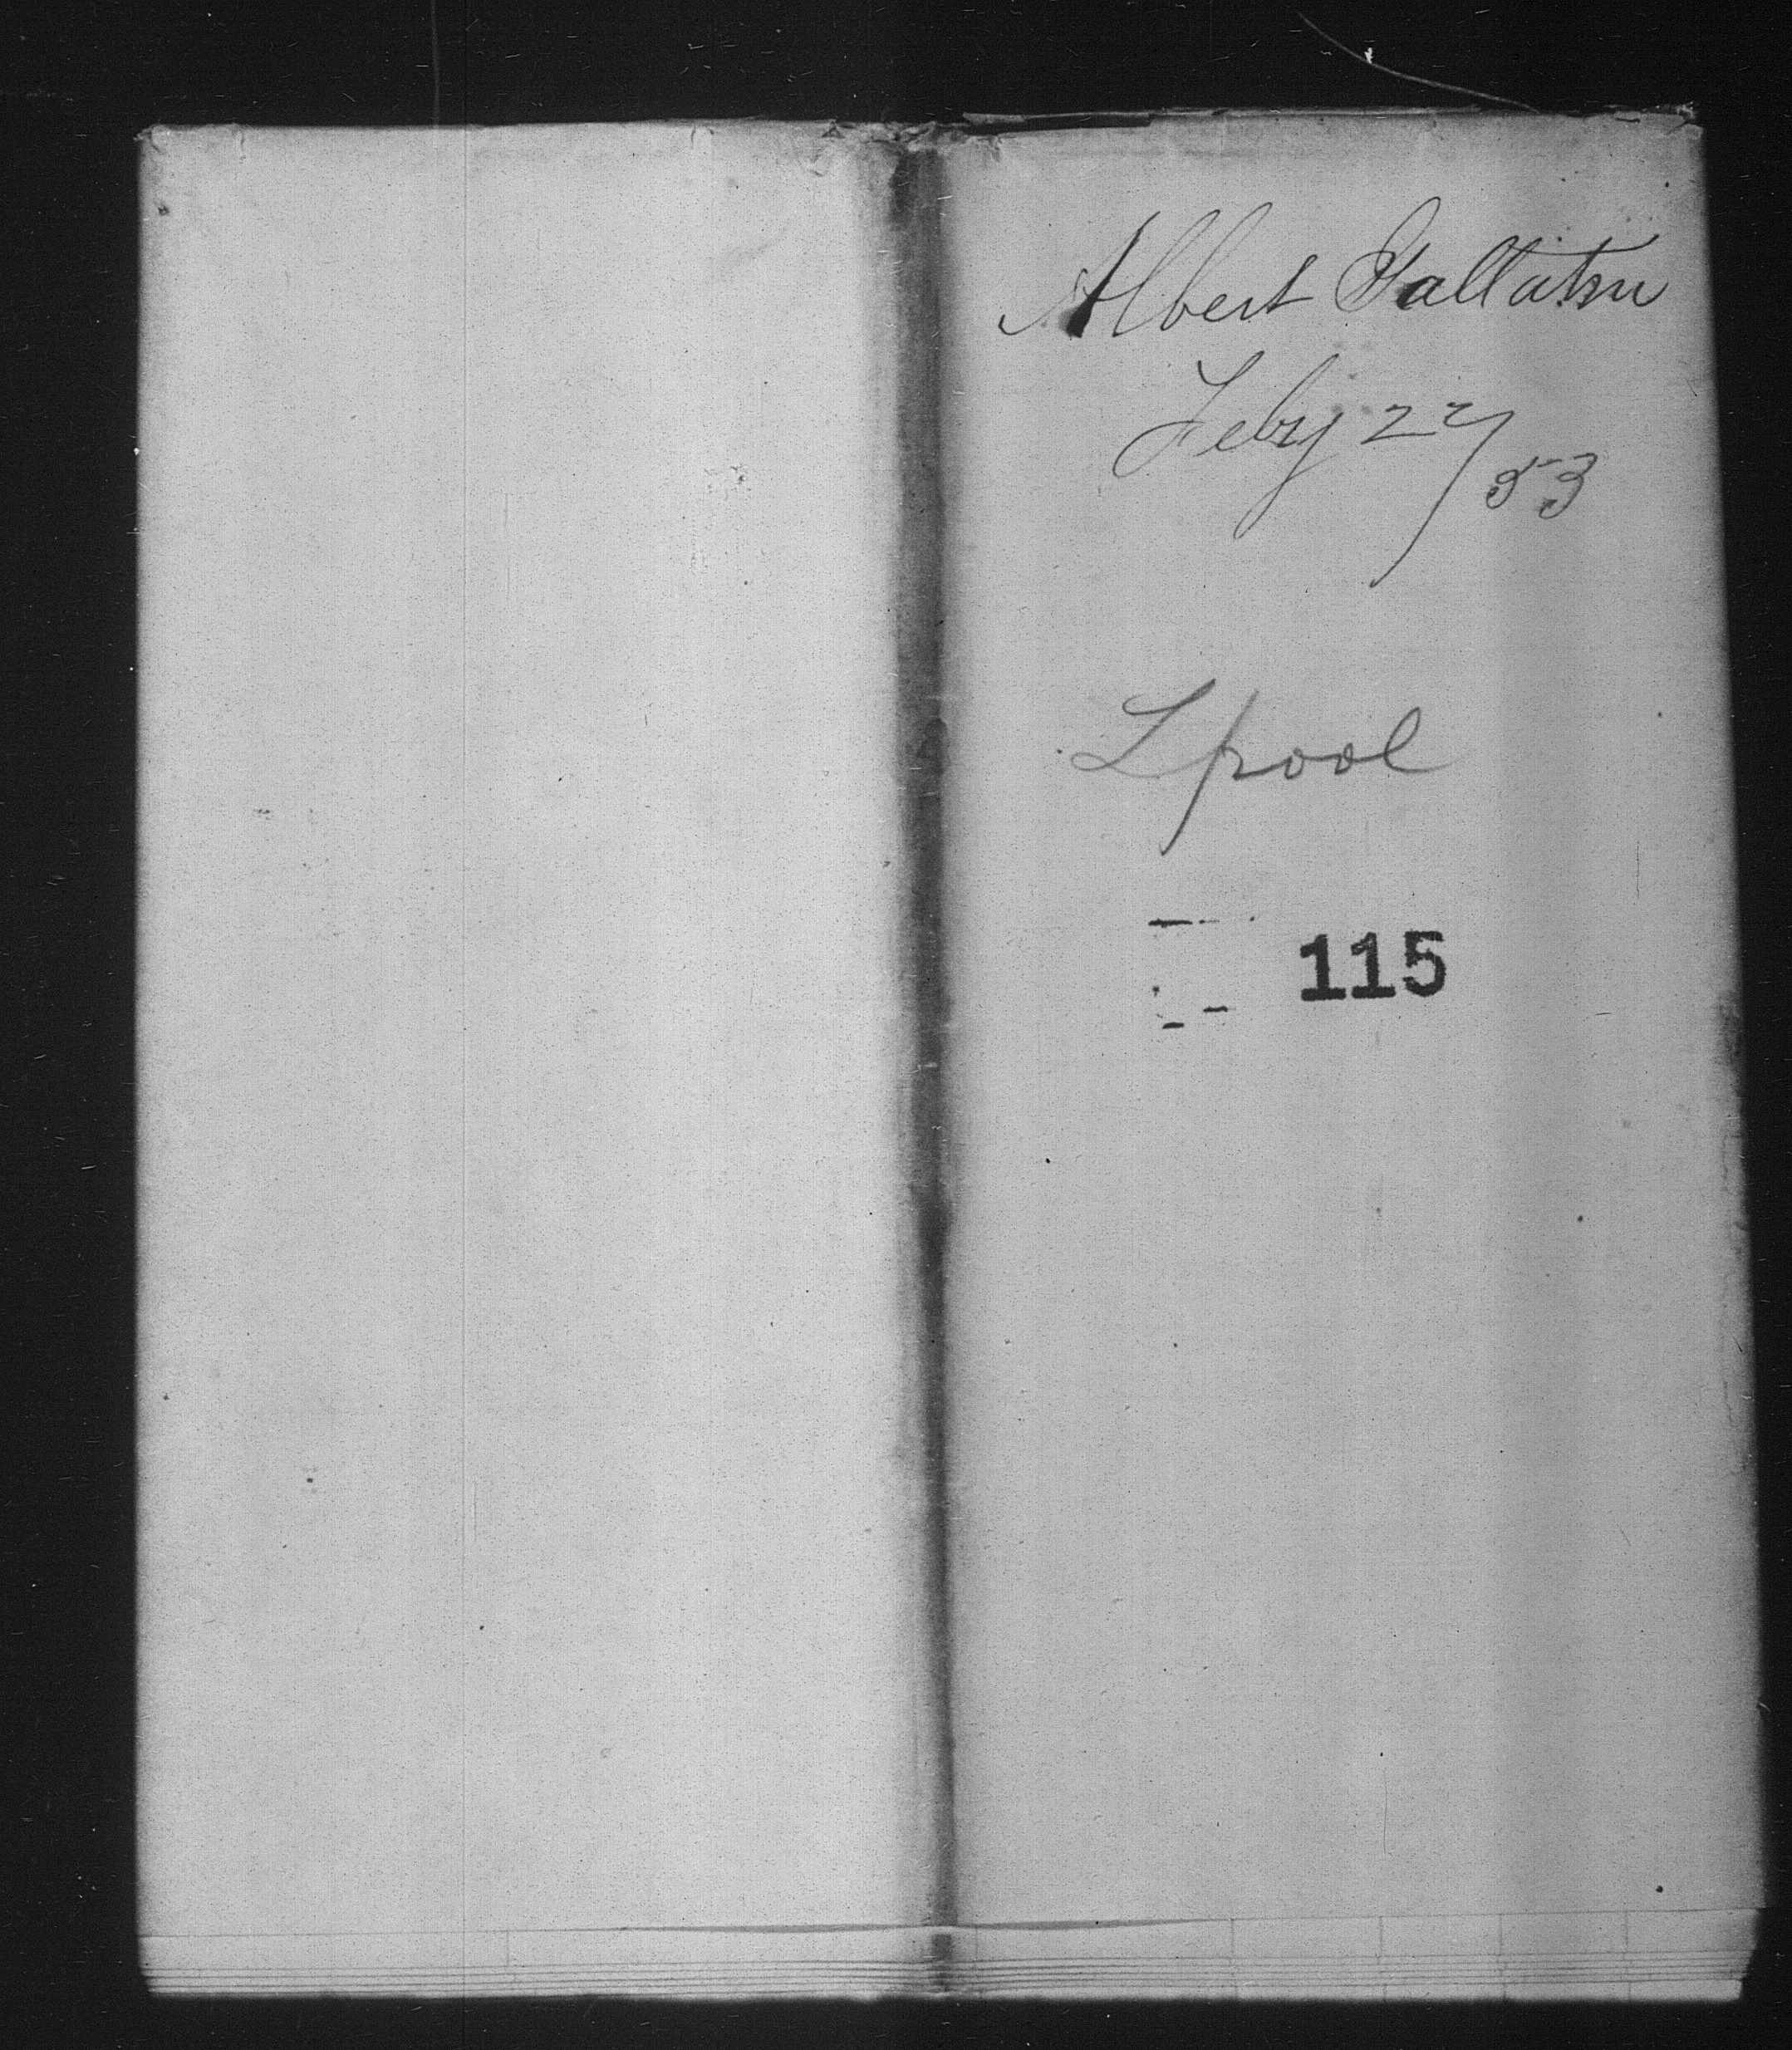 Albert Gallatin
Feby 22/53
Lpool
115